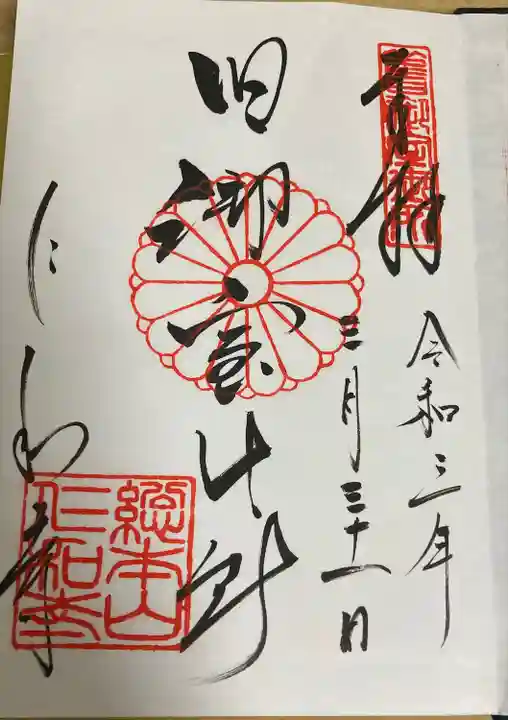 奉拝
令和三年
三月三十一日
旧御室御所
にわか寺
総本山
仁和寺